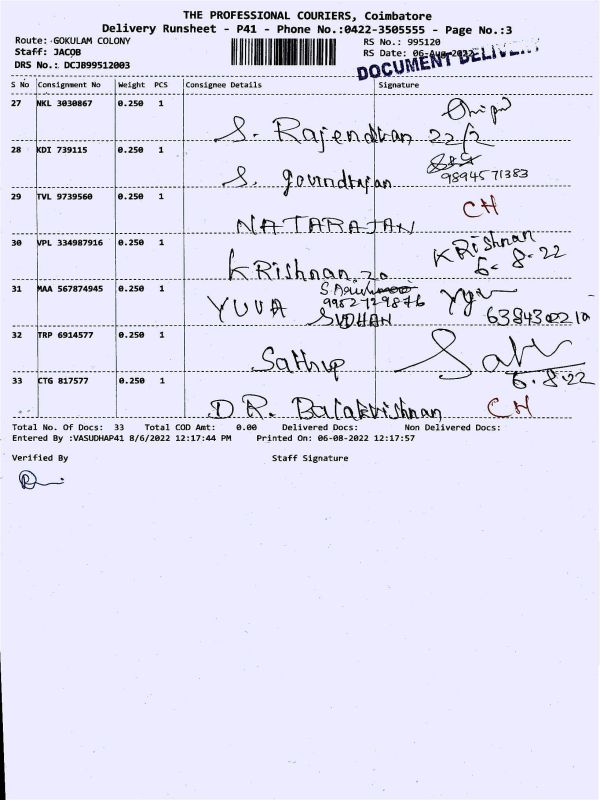 THE PROFESSIONAL COURIERS, Coimbatore
Delivery Runsheet - P41 - Phone No.:0422-3505555 - Page No.:3
Route: GOKULAM COLONY RS No.: 995120
Staff: JACOB RS Date: 06-Aug-2022
DRS No.: DCJB99512003 DOCUMENT DELIVERY
S No Consignment No Weight PCS Consignee Details Signature
27 NKL 3030867 0.250 1
S. Rajendran 22/2
28 KDI 739115 0.250 1
S. govindrajan 9894571383
29 TVL 9739560 0.250 1 CH
NATARAJAN
30 VPL 334987916 0.250 1 KRishnan
KRishnan 20 6-8-22
31 MAA 567874945 0.250 1
YUVA 9952729876
SUDHAN 6384300210
32 TRP 6914577 0.250 1
Sathya
33 CTG 817577 0.250 1 6.8.22
D.R. Balakrishnan CH
Total No. Of Docs: 33 Total COD Amt: 0.00 Delivered Docs: Non Delivered Docs:
Entered By :VASUDHAP41 8/6/2022 12:17:44 PM Printed On: 06-08-2022 12:17:57
Verified By Staff Signature